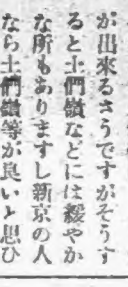 が出來るさうですがそうす
ると土們嶺などには緩やか
な所もありますし新京の人
なら土們嶺等が良いと思ひ